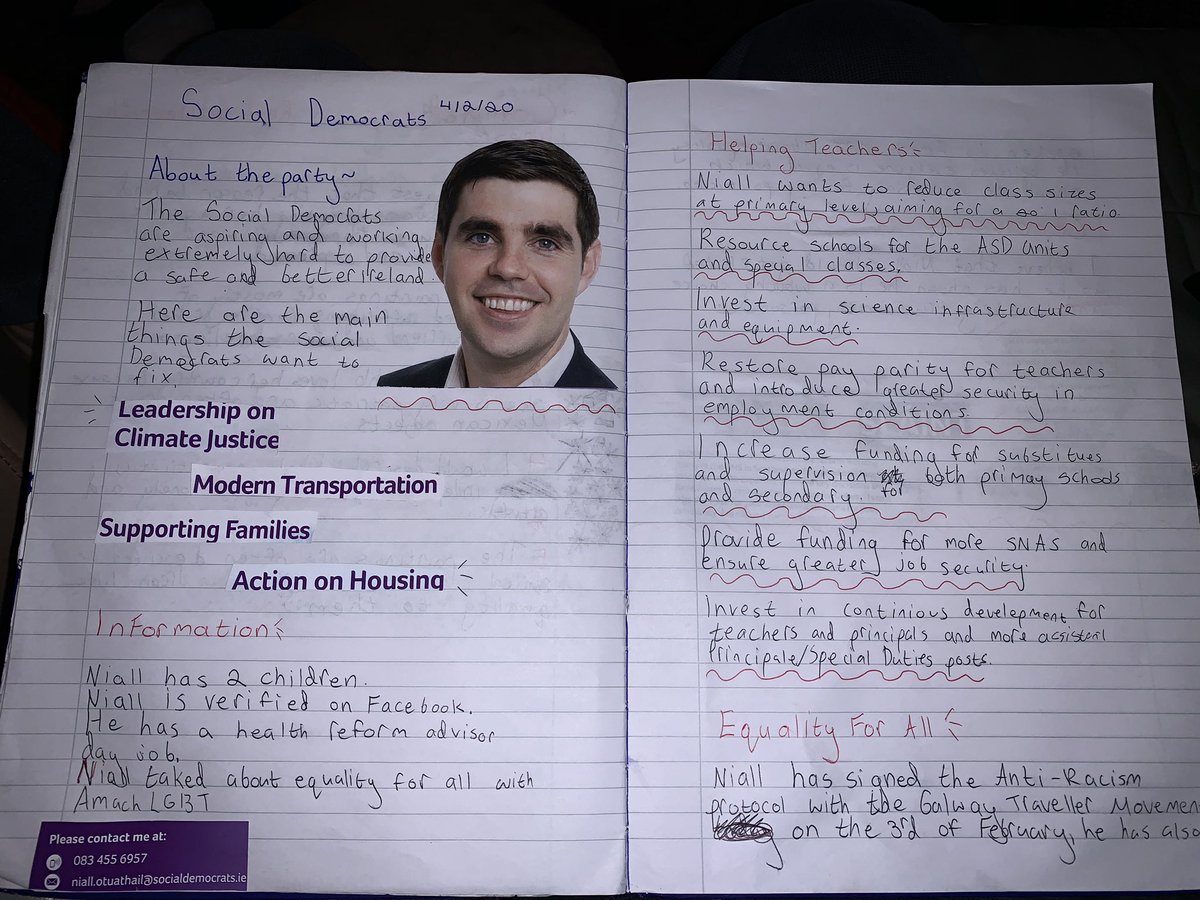 Social Democrats 4/2/20
About the party~
The Social Democrats
are aspiring and working
extremely hard to provide
a safe and better ireland.
Here are the main
things the social
Democrats want to
fix.
Leadership on
Climate Justice
Modern Transportation
Supporting Families
Action on Housing
Information
Niall has 2 children.
Niall is verified on Facebook.
He has a health reform advisor
day job.
Niall taked about equality for all with
Amach LGBT
Please contact me at:
083 455 6957
niall.otuathail@socialdemocrats.ie
Helping Teachers
Niall wants to reduce class sizes
at primary level, aiming for a 20:1 ratio.
Resource schools for the ASD units
and special classes.
Invest in science infrastructure
and equipment.
Restore pay parity for teachers
and introduce greater security in
employment conditions.
Increase funding for substitues
and supervision for both primay schools
and secondary.
Provide funding for more SNAs and
ensure greater job security.
Invest in continious develepment for
teachers and principals and more assistent
Principale/Special Duties posts.
Equality For All
Niall has signed the Anti-Racism
protocol with the Galway Traveller Movemen
on the 3rd of February, he has also